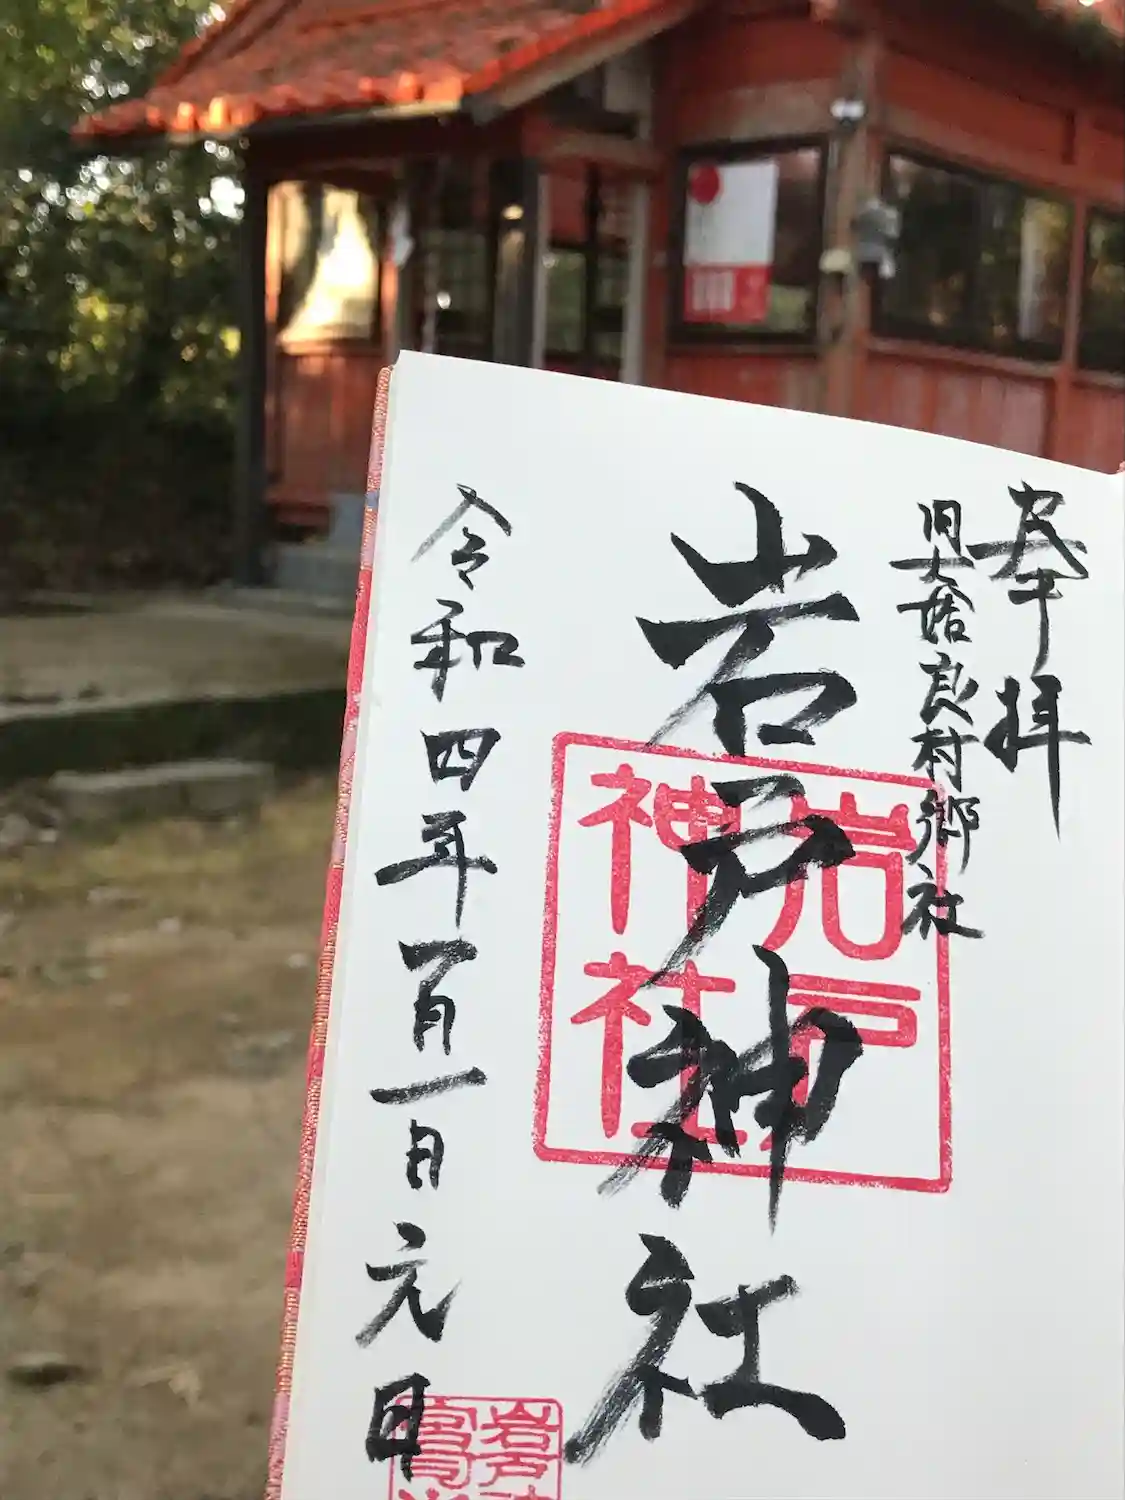 奉拝
旧大姶良村郷社
岩戸神社
岩戸神社
令和四年一月一日元旦